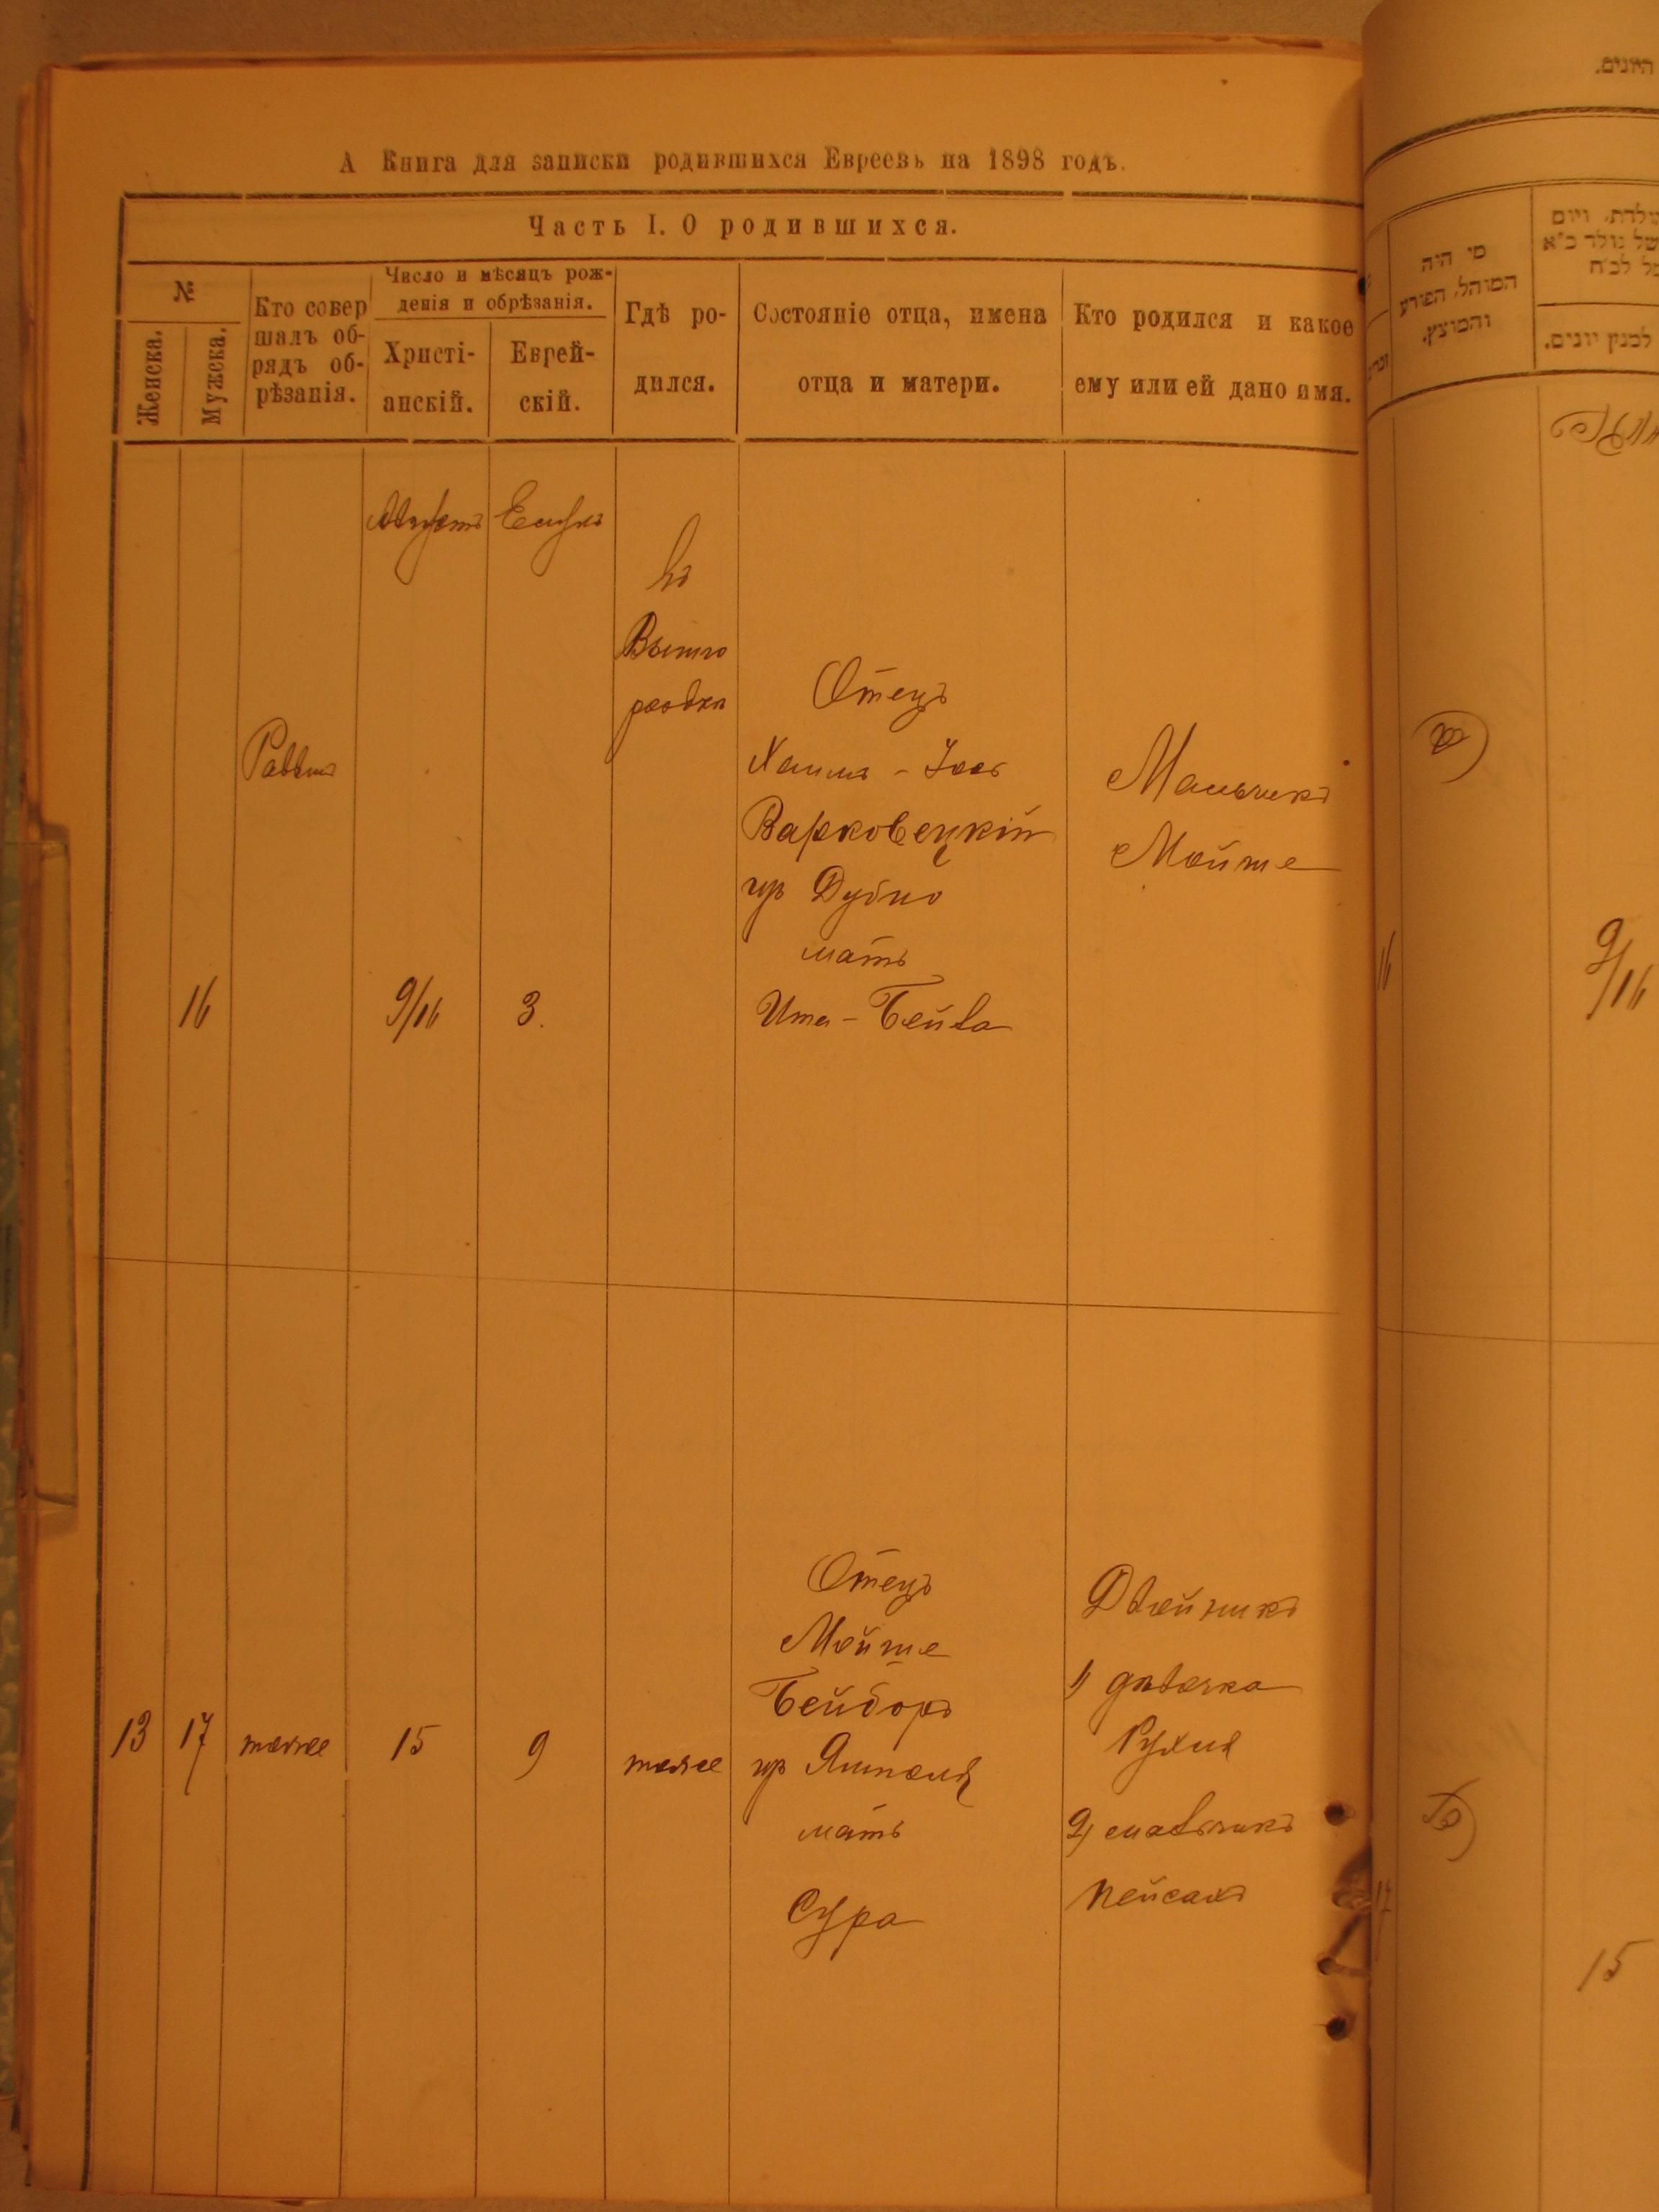 А Книга для записки родившихся Евреевъ на 1898 годъ.
Часть I. О родившихся.
№
Женска.
Мужска.
Кто совер
шалъ об-
рядъ об-
рѣзанія.
Число и мѣсяцъ рож-
денія и обрѣзанія.
Христі-
анскій.
Еврей-
скій.
Гдѣ ро-
дился.
Состояніе отца, имена
отца и матери.
Кто родился и какое
ему или ей дано имя.
Августъ
Елулъ
въ
Вышго
родкѣ
16
9/16
3.
Отецъ
Хаимъ - Іось
Варковецкій
гр Дубно
мать
Ита - Бейла
Мальчикъ
Мойше
13
17
тоже
15
9
тоже
Отецъ
Мойше
Бейдоръ
гр Ямполя
мать
Сура
Двойникъ
1) дѣвочка
Рухля
2) мальчикъ
Пейсахъ
מי היה
המוהל, הפורע
והמוצץ.
למנין יונים.
16
9/16
17
15